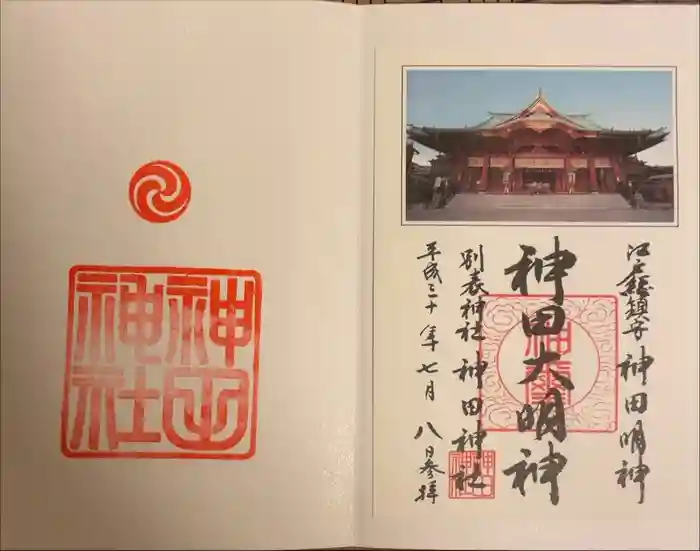 江戸総鎮守 神田明神
神田大明神
神璽
別表神社 神田神社
神田神社
平成三十年七月八日参拝
神田神社